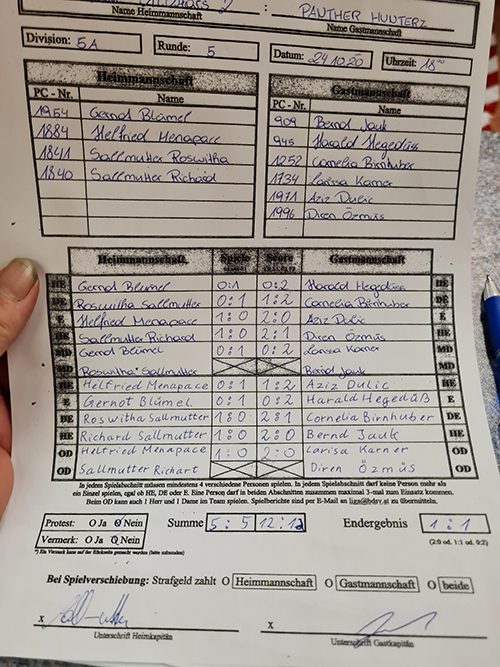 2 : PAUTHER HUUTERZ
Name Heimmannschaft Name Gastmannschaft
Division: 5A Runde: 5 Datum: 24.10.20 Uhrzeit: 18⁰⁰
Heimmannschaft Gastmannschaft
PC - Nr. Name PC - Nr. Name
1954 Gernot Blümel 909 Bernd Jauk
1884 Helfried Menapace 945 Harald Hegedüss
1841 Sallmutter Roswitha 1252 Cornelia Birnhuber
1840 Sallmutter Richard 1734 Larissa Karner
1971 Aziz Dulic
1996 Diren Özmüs
Heimmannschaft Spiele Score Gastmannschaft
HE Gernot Blümel 0:1 0:2 Harald Hegedüss HE
DE Roswitha Sallmutter 0:1 1:2 Cornelia Birnhuber DE
E Helfried Menapace 1:0 2:0 Aziz Dulic E
HE Sallmutter Richard 1:0 2:1 Diren Özmüs HE
MD Gernot Blümel 0:1 0:2 Larissa Karner MD
MD Roswitha Sallmutter Bernd Jauk MD
HE Helfried Menapace 0:1 1:2 Aziz Dulic HE
E Gernot Blümel 0:1 0:2 Harald Hegedüß E
DE Roswitha Sallmutter 1:0 2:1 Cornelia Birnhuber DE
HE Richard Sallmutter 1:0 2:0 Bernd Jauk HE
OD Helfried Menapace 1:0 2:0 Larisa Karner OD
OD Sallmutter Richart Diren Özmüs OD
In jedem Spielabschnitt müssen mindestens 4 verschiedene Personen spielen. In jedem Spielabschnitt darf keine Person mehr als
ein Einzel spielen, egal ob HE, DE oder E. Eine Person darf in beiden Abschnitten zusammen maximal 3-mal zum Einsatz kommen.
Beim OD kann auch 1 Herr und 1 Dame im Team spielen. Spielberichte sind per E-Mail an liga@bdsv.at zu übermitteln.
Protest: O Ja O Nein Summe 5:5 12:12 Endergebnis 1:1
Vermerk: O Ja O Nein (2:0 od. 1:1 od. 0:2)
*) Ein Vermerk kann auf der Rückseite gemacht werden (bitte umwenden)
Bei Spielverschiebung: Strafgeld zahlt O Heimmannschaft O Gastmannschaft O beide
x x
Unterschrift Heimkapitän Unterschrift Gastkapitän